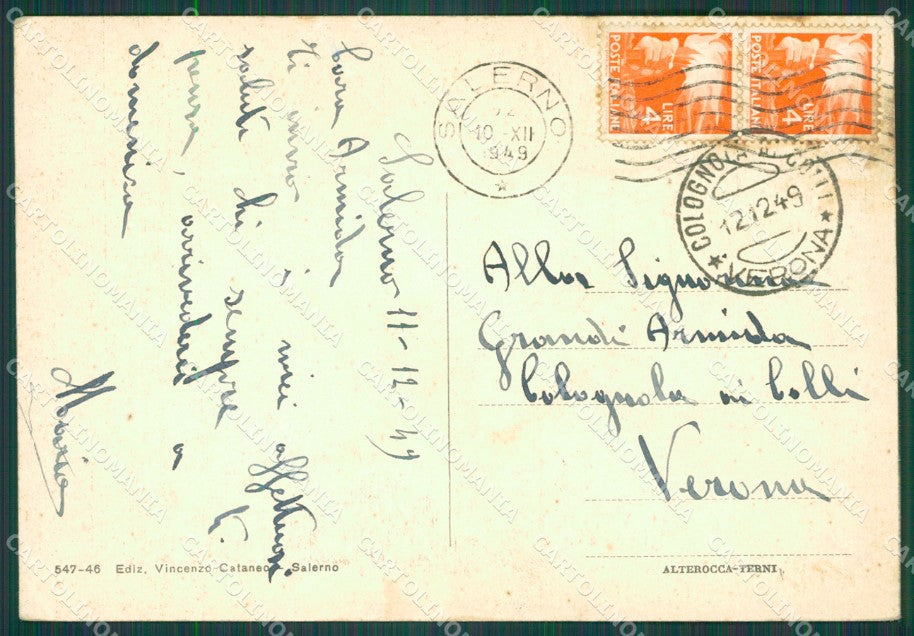 SALERNO
12
10 - XII
1949
POSTE ITALIANE
LIRE
4
POSTE ITALIANE
LIRE
4
COLOGNOLA AI COLLI
12.12.49
VERONA
Salerno 11-12-49
Cara Armida
Ti invio i miei affettuosi
saluti di sempre
pensa, arrivederci a
domenica
Alla Signorina
Grandi Armida
Colognola ai Colli
Verona
547-46 Ediz. Vincenzo Cataneo - Salerno
ALTEROCCA-TERNI
CARTOLINOMANIA